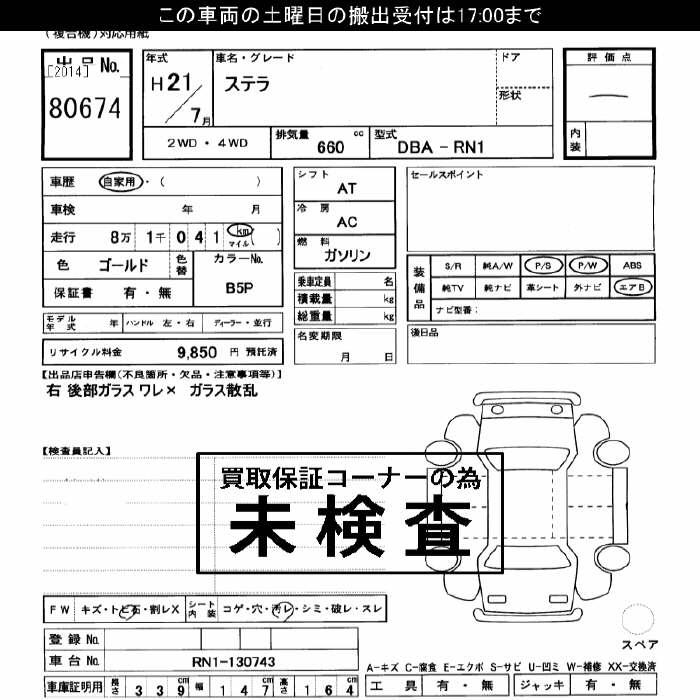 この車両の土曜日の搬出受付は17:00まで
(複合機)対応用紙
出品No.
[2014]
80674
年式
H21/7月
車名・グレード
ステラ
ドア
形状
評価点
内装
2WD・4WD
排気量 660 cc
型式 DBA-RN1
車歴 自家用・( )
車検 年 月
走行 8万 1千 0 4 1 km マイル ( )
色 ゴールド 色替
カラーNo.
B5P
保証書 有・無
シフト
AT
冷房
AC
燃料
ガソリン
乗車定員 名
積載量 kg
総重量 kg
セールスポイント
装備品
S/R 純A/W P/S P/W ABS
純TV 純ナビ 革シート 外ナビ エアB
ナビ型番:
モデル年式 年 ハンドル 左・右 ディーラー・並行
名変期限
月 日
後日品
リサイクル料金 9,850 円 預託済
【出品店申告欄(不良箇所・欠品・注意事項等)】
右 後部ガラス ワレ× ガラス散乱
【検査員記入】
買取保証コーナーの為
未検査
FW キズ・トビ石・割レX シート内装 コゲ・穴・汚レ・シミ・破レ・スレ
登録No.
車台No. RN1-130743
車庫証明用 長さ 339cm 幅 147cm 高さ 164cm
スペア
A-キズ C-腐食 E-エクボ S-サビ U-凹ミ W-補修 XX-交換済
工具 有・無 ジャッキ 有・無